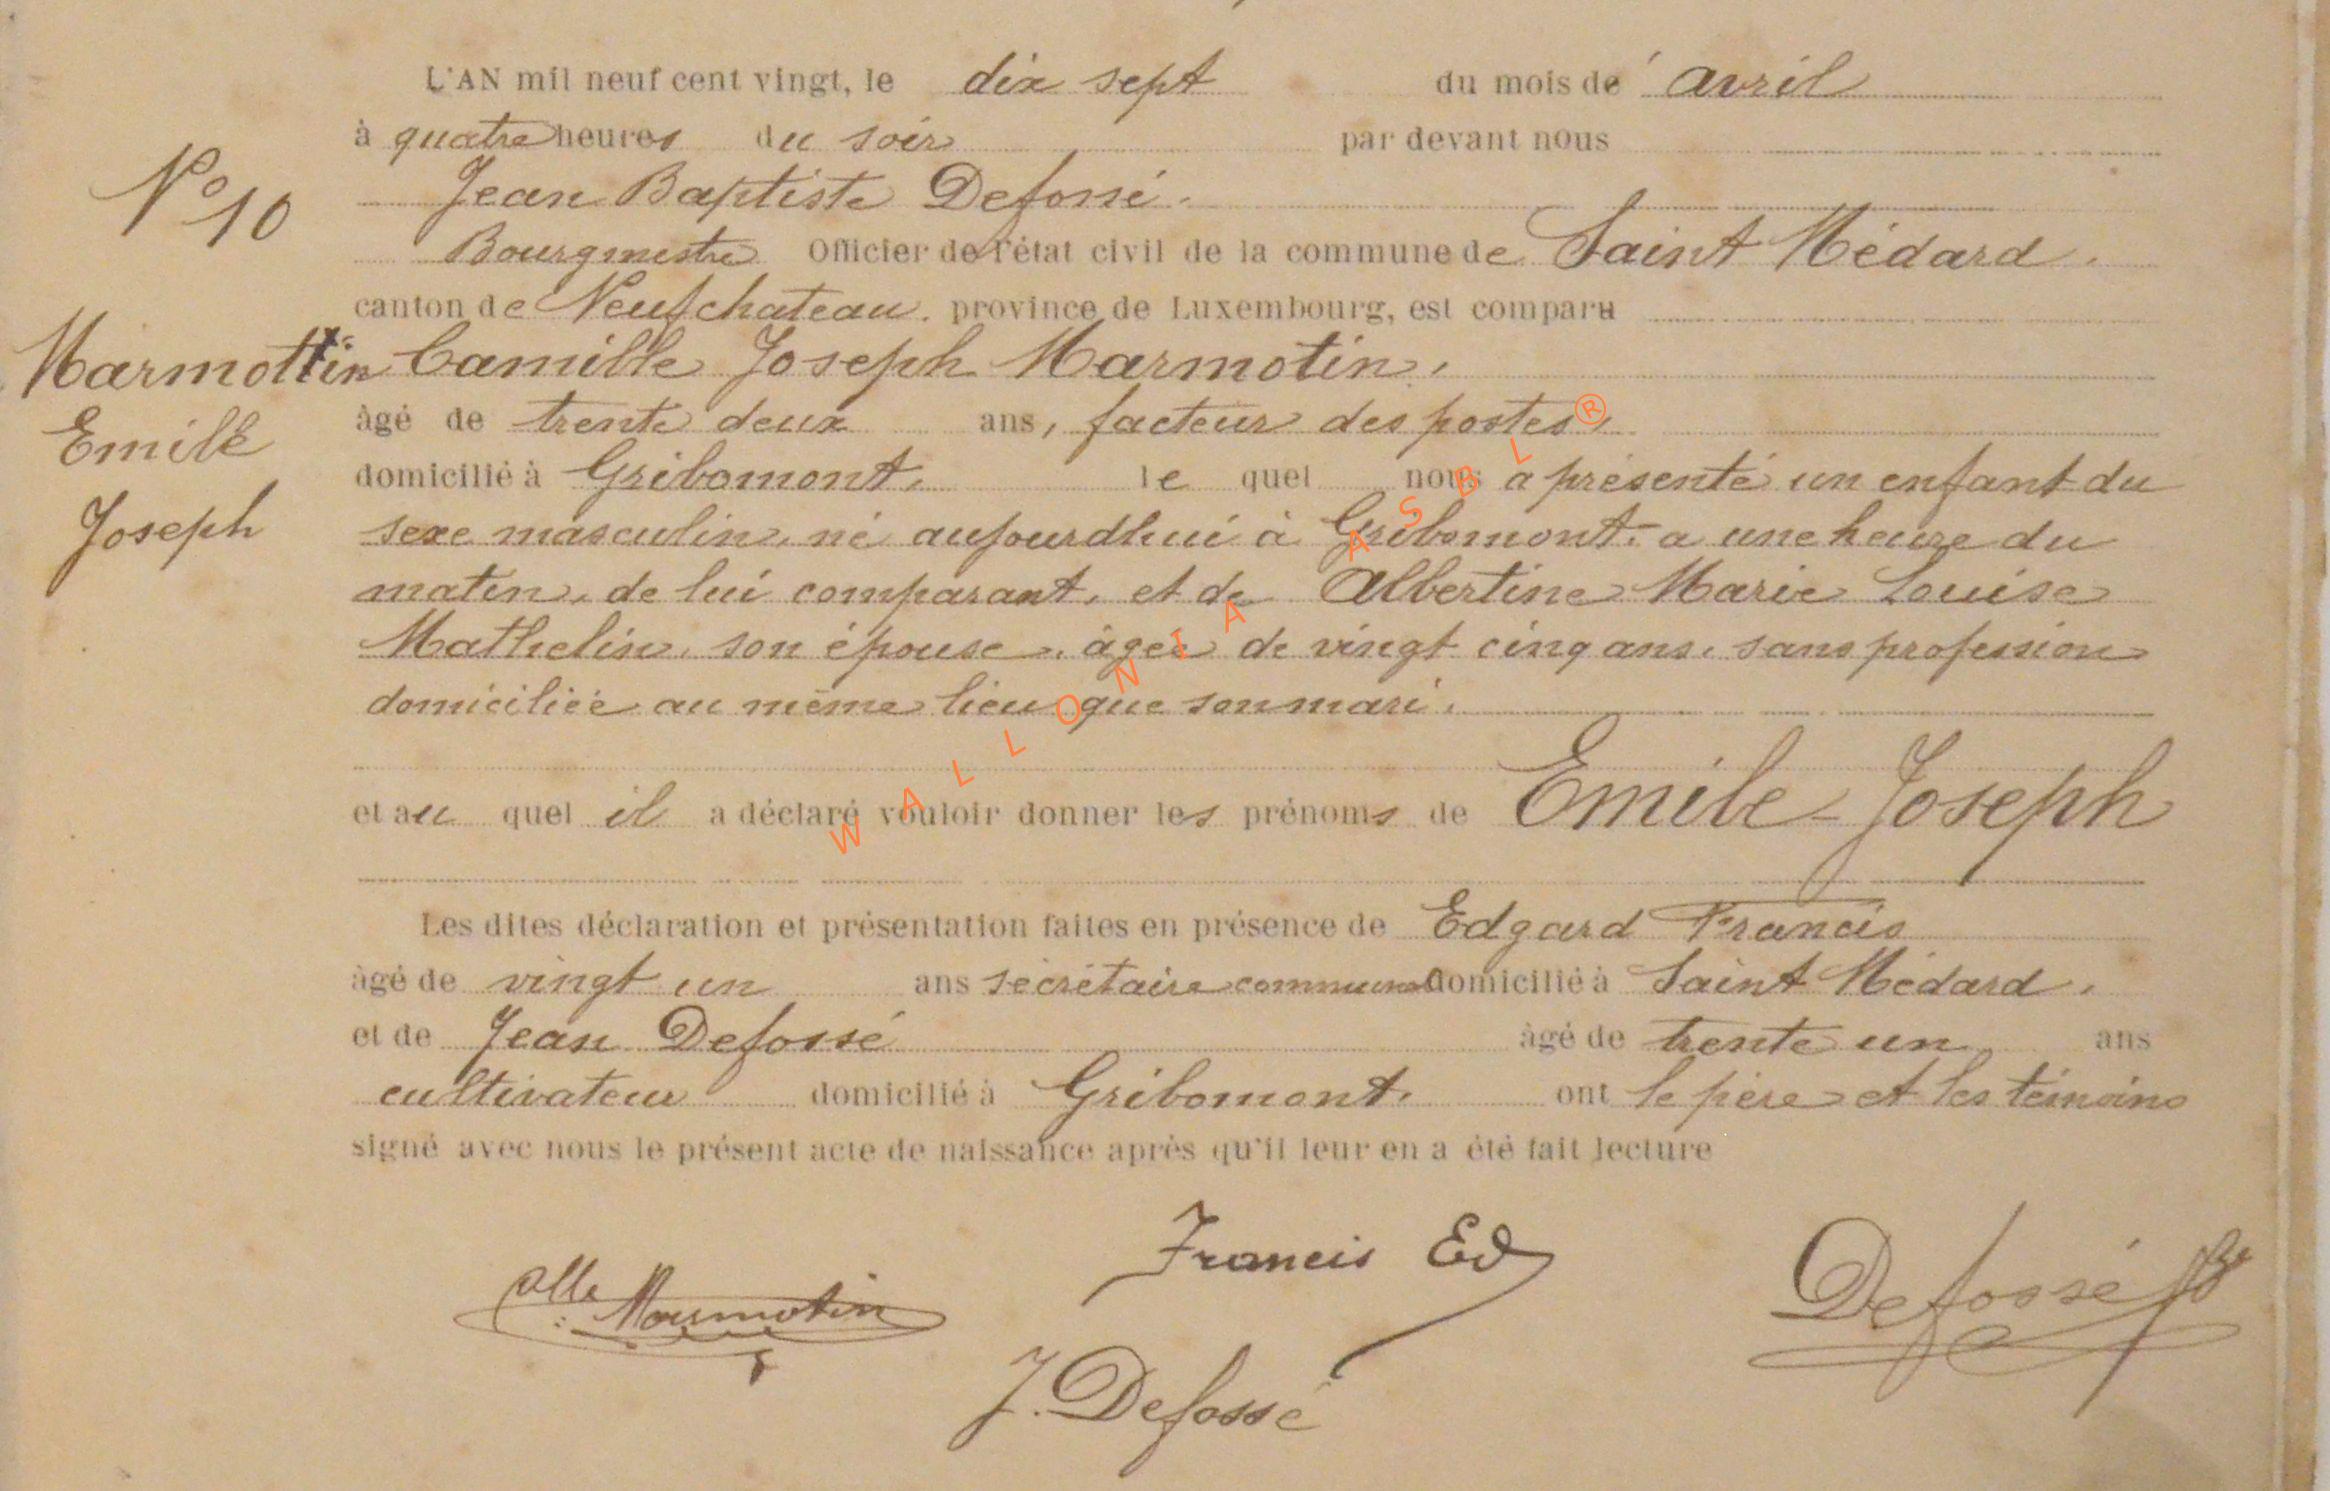 L'AN mil neuf cent vingt, le dix sept du mois de avril
à quatre heures du soir par devant nous
N° 10
Jean Baptiste Defossé.
Bourgmestre Officier de l'état civil de la commune de Saint Médard.
canton de Neufchateau. province de Luxembourg, est comparu
Marmottin
Emile
Joseph
Camille Joseph Marmotin,
âgé de trente deux ans, facteur des postes,
domicilié à Gribomont, le quel nous a présenté un enfant du
sexe masculin, né aujourdhui à Gribomont, a une heure du
matin, de lui comparant, et de Albertine Marie Louise
Mathelin, son épouse, âgée de vingt cinq ans, sans profession
domiciliée au même lieu que son mari.
et au quel il a déclaré vouloir donner les prénoms de Emile-Joseph
Les dites déclaration et présentation faites en présence de Edgard Francis
âgé de vingt un ans secrétaire communal domicilié à Saint Médard.
et de Jean Defossé âgé de trente un ans
cultivateur domicilié à Gribomont. ont le père et les témoins
signé avec nous le présent acte de naissance après qu'il leur en a été fait lecture
Francis Ed
Clle Marmotin
Defossé JB
J. Defossé
WALLONIA ASBL ®